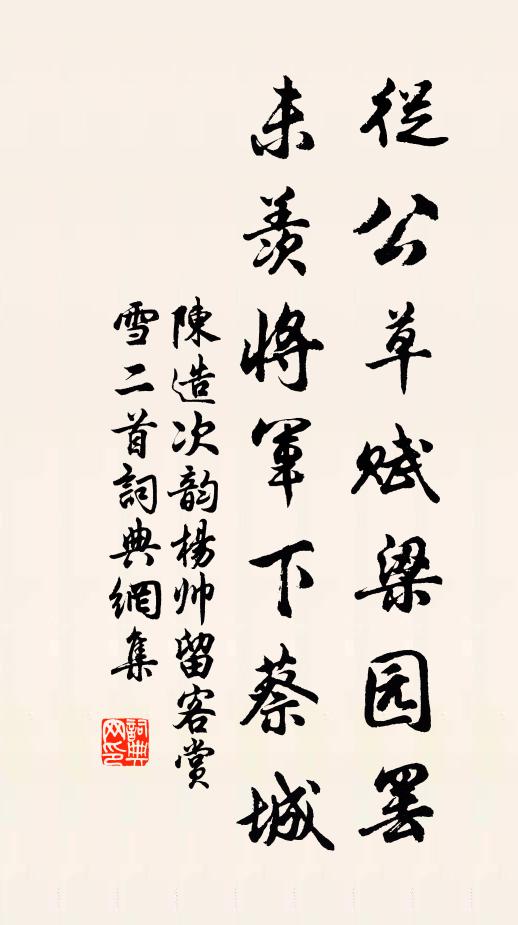 從公草赋梁园罢
未羨將軍下蔡城
陳造次韵楊帅留客賞
雪二首詞典網集
詞典网印